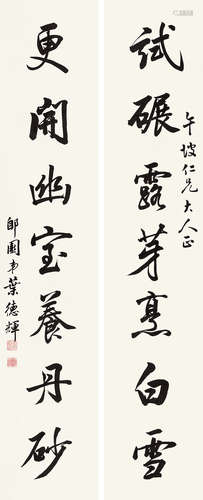 試碾露芽烹白雪
午坡仁兄大人正
更開幽室養丹砂
郋園弟葉德輝